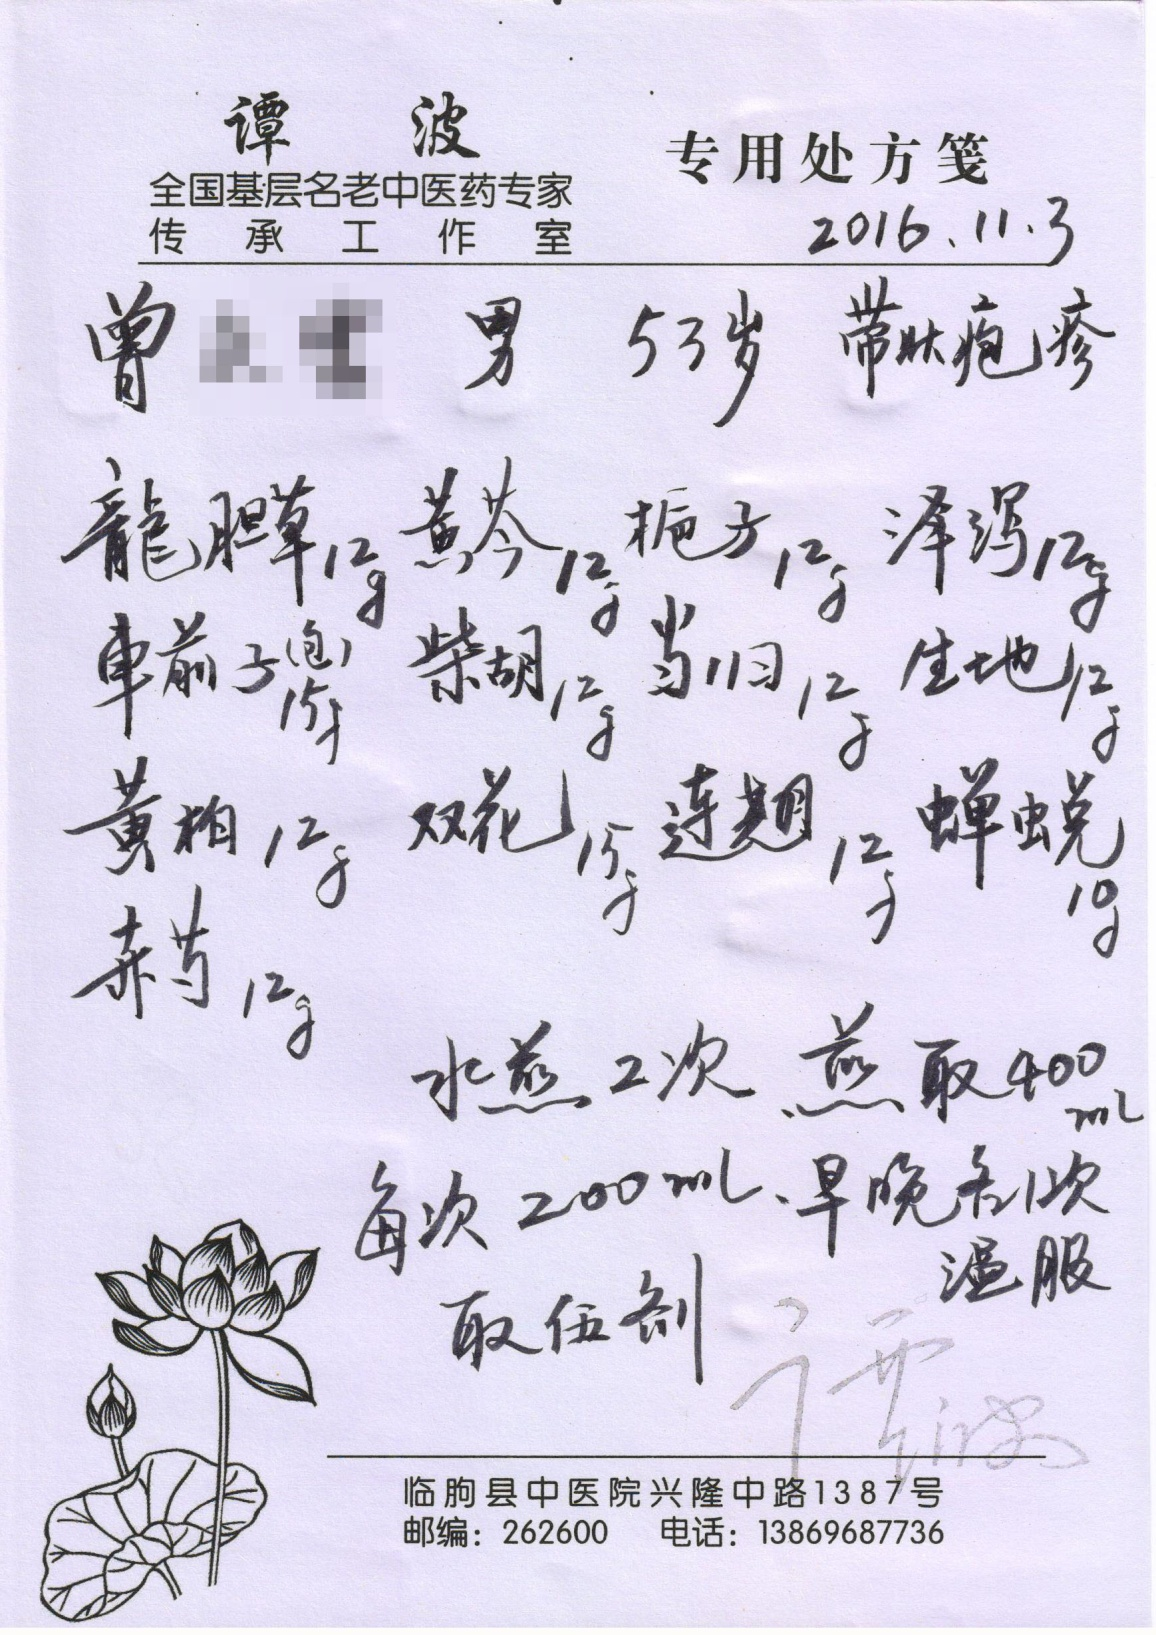 谭 波
全国基层名老中医药专家
传承工作室
专用处方笺
2016.11.3
曾 男 53岁 带状疱疹
龍胆草12g 黄芩12g 栀子12g 泽泻12g
車前子(包)15g 柴胡12g 当归12g 生地12g
黄柏12g 双花15g 连翘12g 蝉蜕10g
赤芍12g
水煎2次 煎取400ml
每次200ml、早晚各1次
温服
取伍剂
谭波
临朐县中医院兴隆中路1387号
邮编：262600 电话：13869687736